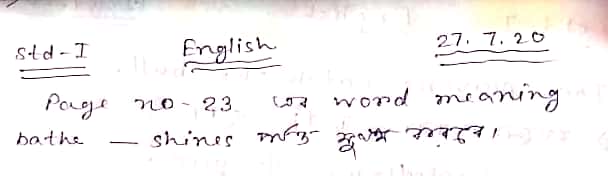 Std-I English 27.7.20
Page no-23 এর word meaning
bathe — shines পর্যন্ত মুখস্থ করবে।